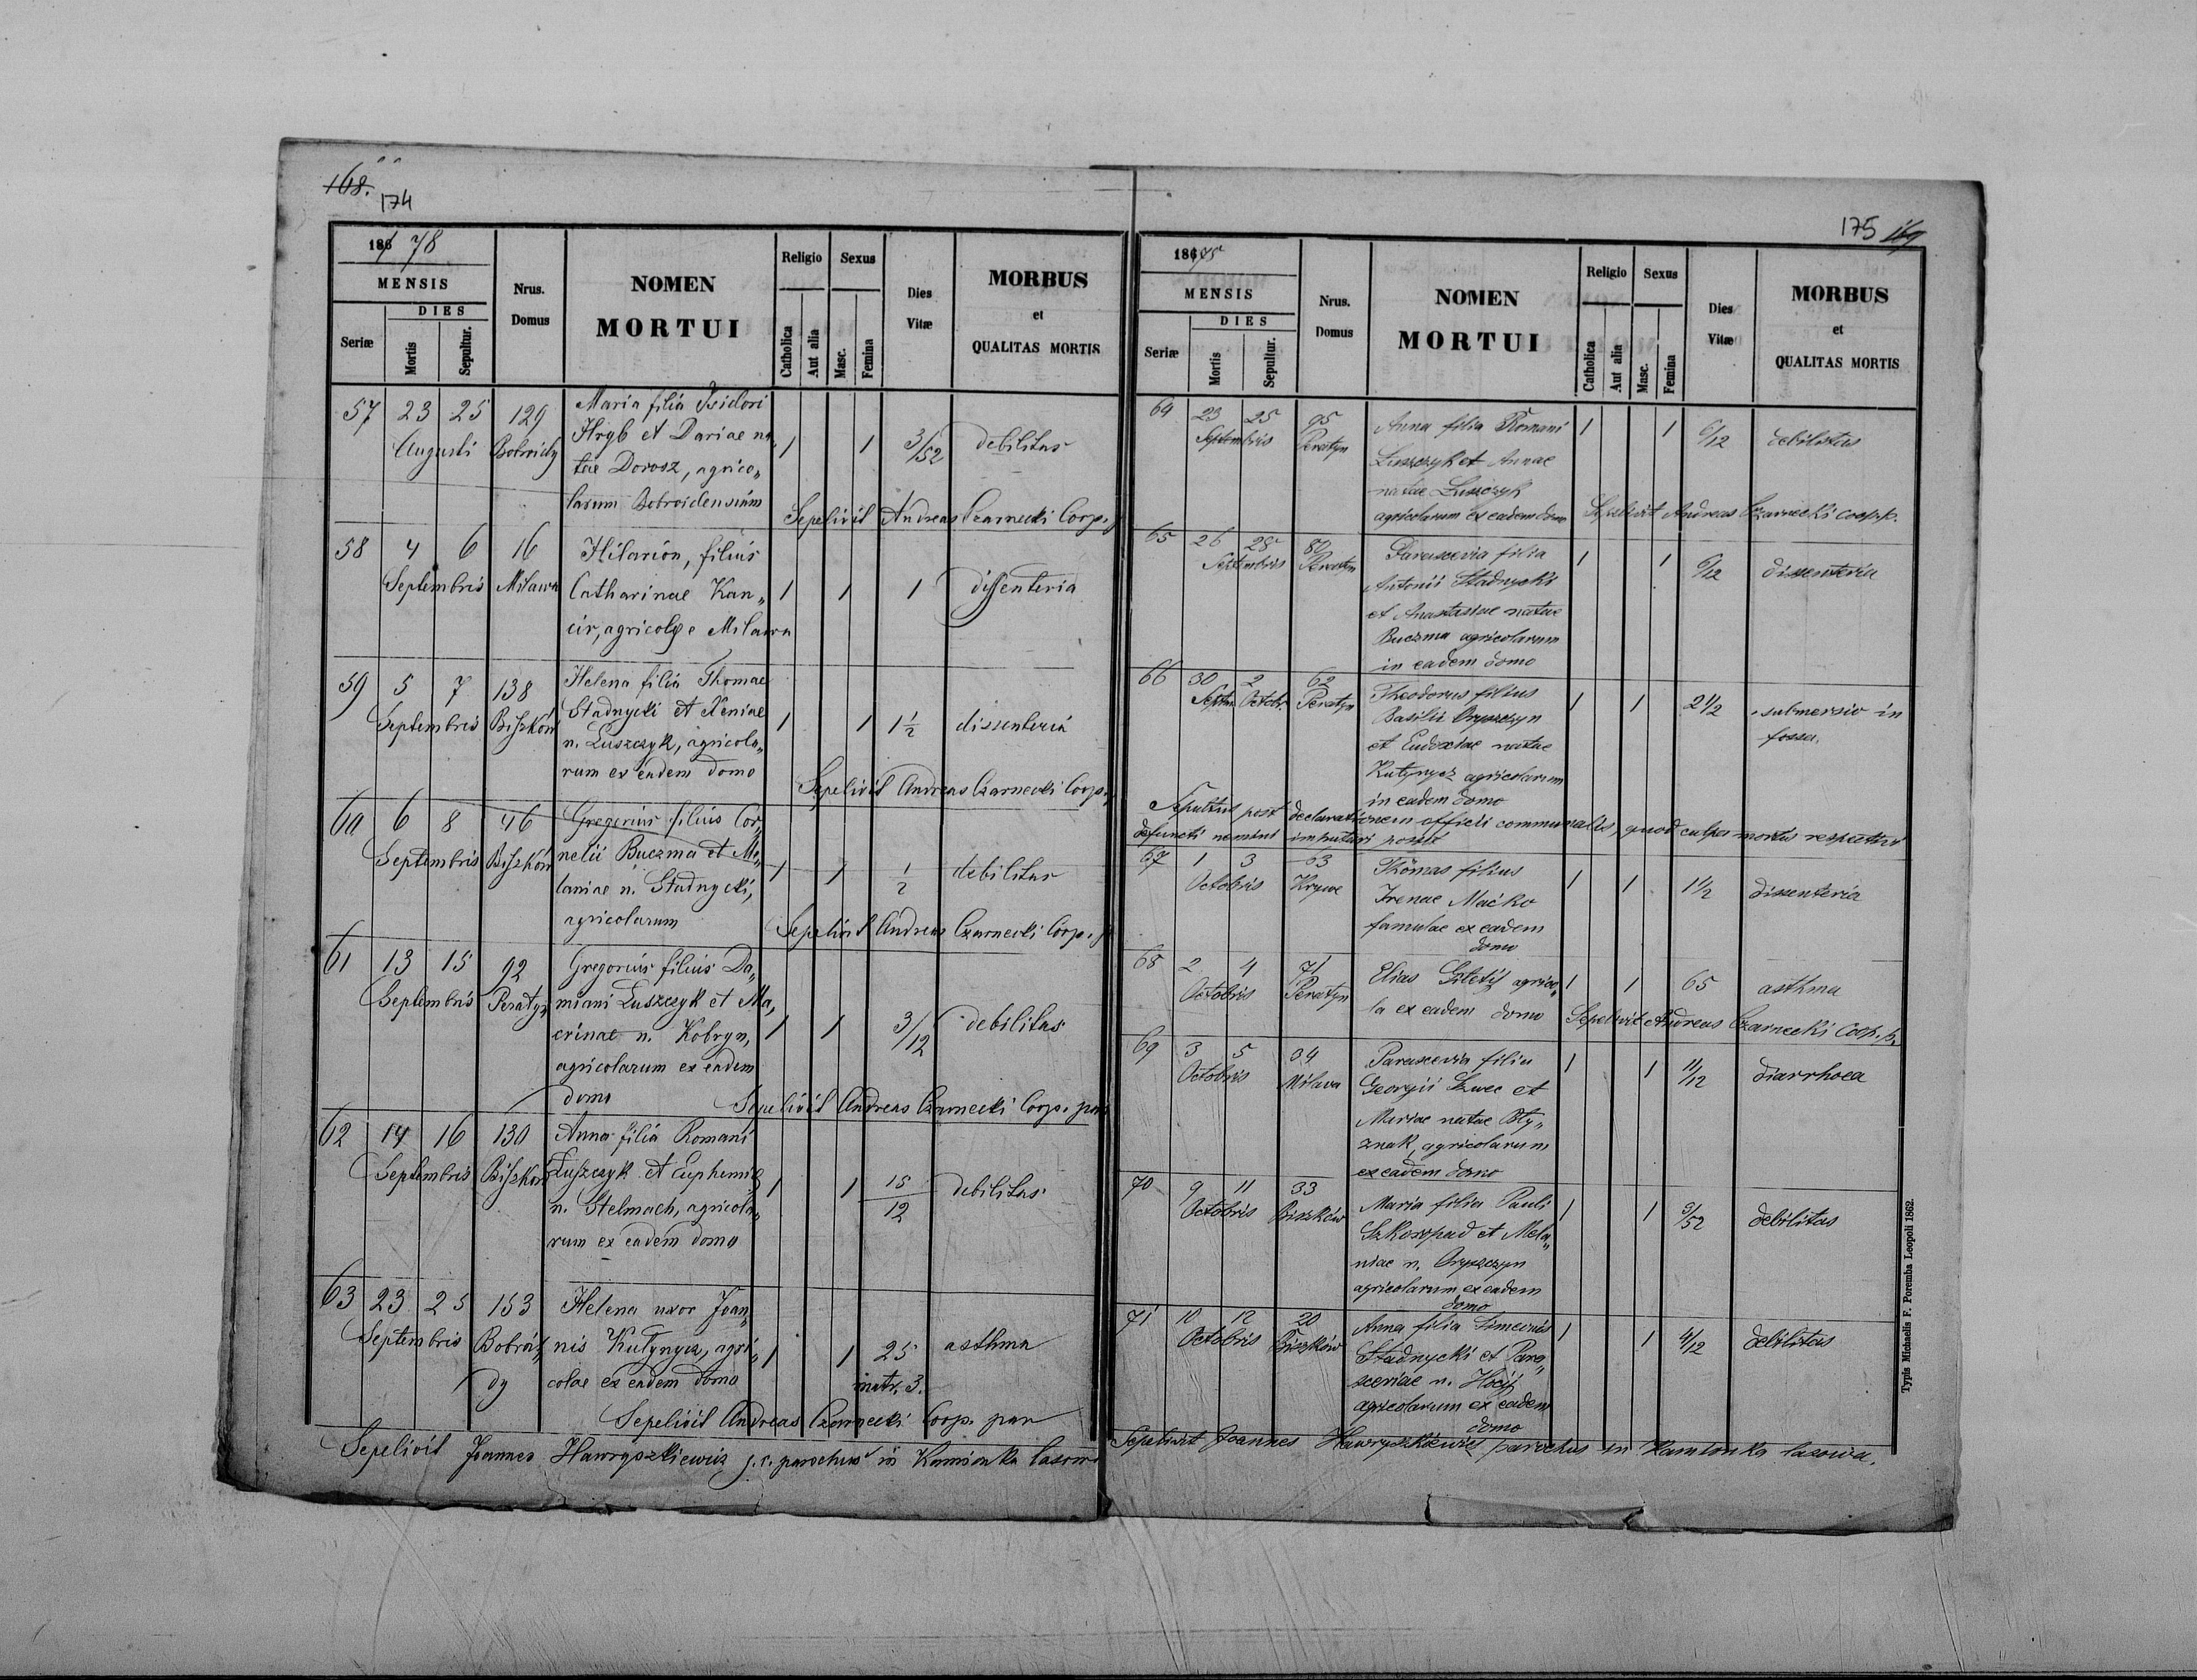 168.
174
186 78
MENSIS
DIES
Seriæ
Mortis
Sepultur.
Nrus.
Domus
NOMEN
MORTUI
Religio
Sexus
Catholica
Aut alia
Masc.
Femina
Dies
Vitæ
MORBUS
et
QUALITAS MORTIS
57 23 25 129 Maria filia Isidori
Augusti Bobroidy Hryb et Dariae na 1 1 3/52 debilitas
tae Dorosz, agrico„
larum Bobroidensium
Sepelivit Andreas Czarnecki Coop.
58 4 6 16 Hilarion, filius
Septembris Milawa Catharinae Kan„ 1 1 1 dissenteria
cir, agricolae Milawa
59 5 7 138 Helena filia Thomae
Septembris Biszków Stadnycki et Xeniae 1 1 1 1/2 dissenteria
n. Łuszczyk, agricola„
rum ex eadem domo
Sepelivit Andreas Czarnecki Coop.
60 6 8 46 Gregorius filius Cor„
Septembris Biszków nelii Buczma et Me„ 1 1 1/2 debilitas
laniae n. Stadnycki,
agricolarum
Sepelivit Andreas Czarnecki Coop.
61 13 15 92 Gregorius filius Da„
Septembris Peratyn miani Łuszczyk et Ma„
crinae n. Kobryn, 1 1 3/12 debilitas
agricolarum ex eadem
domo
Sepelivit Andreas Czarnecki Coop. par
62 14 16 130 Anna filia Romani
Septembris Biszków Łuszczyk et Euphemiae 1 1 15/12 debilitas
n. Stelmach, agricola„
rum ex eadem domo
63 23 25 153 Helena uxor Joan„
Septembris Bobroi„ nis Kutynycz, agri„ 1 1 25 asthma
dy colae ex eadem domo matr. 3.
Sepelivit Andreas Czarnecki Coop. par
Sepelivit Joannes Hawryszkiewicz parochus in Kamionka lasowa
175 169
186
MENSIS
DIES
Seriæ
Mortis
Sepultur.
Nrus.
Domus
NOMEN
MORTUI
Religio
Sexus
Catholica
Aut alia
Masc.
Femina
Dies
Vitæ
MORBUS
et
QUALITAS MORTIS
64 23 25 95 Anna filia Romani 1 1 6/12 debilitas
Septembris Peratyn Łuszczyk et Annae
natae Łuszczyk
agricolarum ex eadem domo
Sepelivit Andreas Czarnecki Coop.p.
65 26 28 80 Parascevia filia 1 1 6/12 dissenteria
Septembris Peratyn Antonii Stadnycki
et Anastasiae natae
Buczma agricolarum
in eadem domo
66 30 2 62 Theodorus filius 1 1 2 1/2 submersio in
Septem. Octobr. Peratyn Basilii Oryszczyn fossa.
et Eudoxiae natae
Kutynycz agricolarum
in eadem domo
Sepultus post declarationem officii communalis, quod culpa mortis respectivi
defuncti nemini imputari possit
67 1 3 63 Thomas filius
Octobris Krywe Irenae Maćko 1 1 1 1/2 dissenteria
famulae ex eadem
domo
68 2 4 71 Elias Giletij agrico„ 1 1 65 asthma
Octobris Peratyn la ex eadem domo
Sepelivit Andreas Czarnecki Coop.p.
69 3 5 34 Parascevia filia 1 1 11/12 diarrhoea
Octobris Milawa Georgii Szwec et
Mariae natae Bły„
znak, agricolarum
ex eadem domo
70 9 11 33 Maria filia Pauli 1 1 3/52 debilitas
Octobris Biszków Szkoropad et Mela„
niae n. Oryszczyn
agricolarum ex eadem
domo
71 10 12 20 Anna filia Simeonis 1 1 4/12 debilitas
Octobris Biszków Stadnycki et Para„
sceviae n. Hocij
agricolarum ex eadem
domo
Sepelivit Joannes Hawryszkiewicz parochus in Kamionka lasowa.
Typis Michaelis F. Poremba Leopoli 1862.